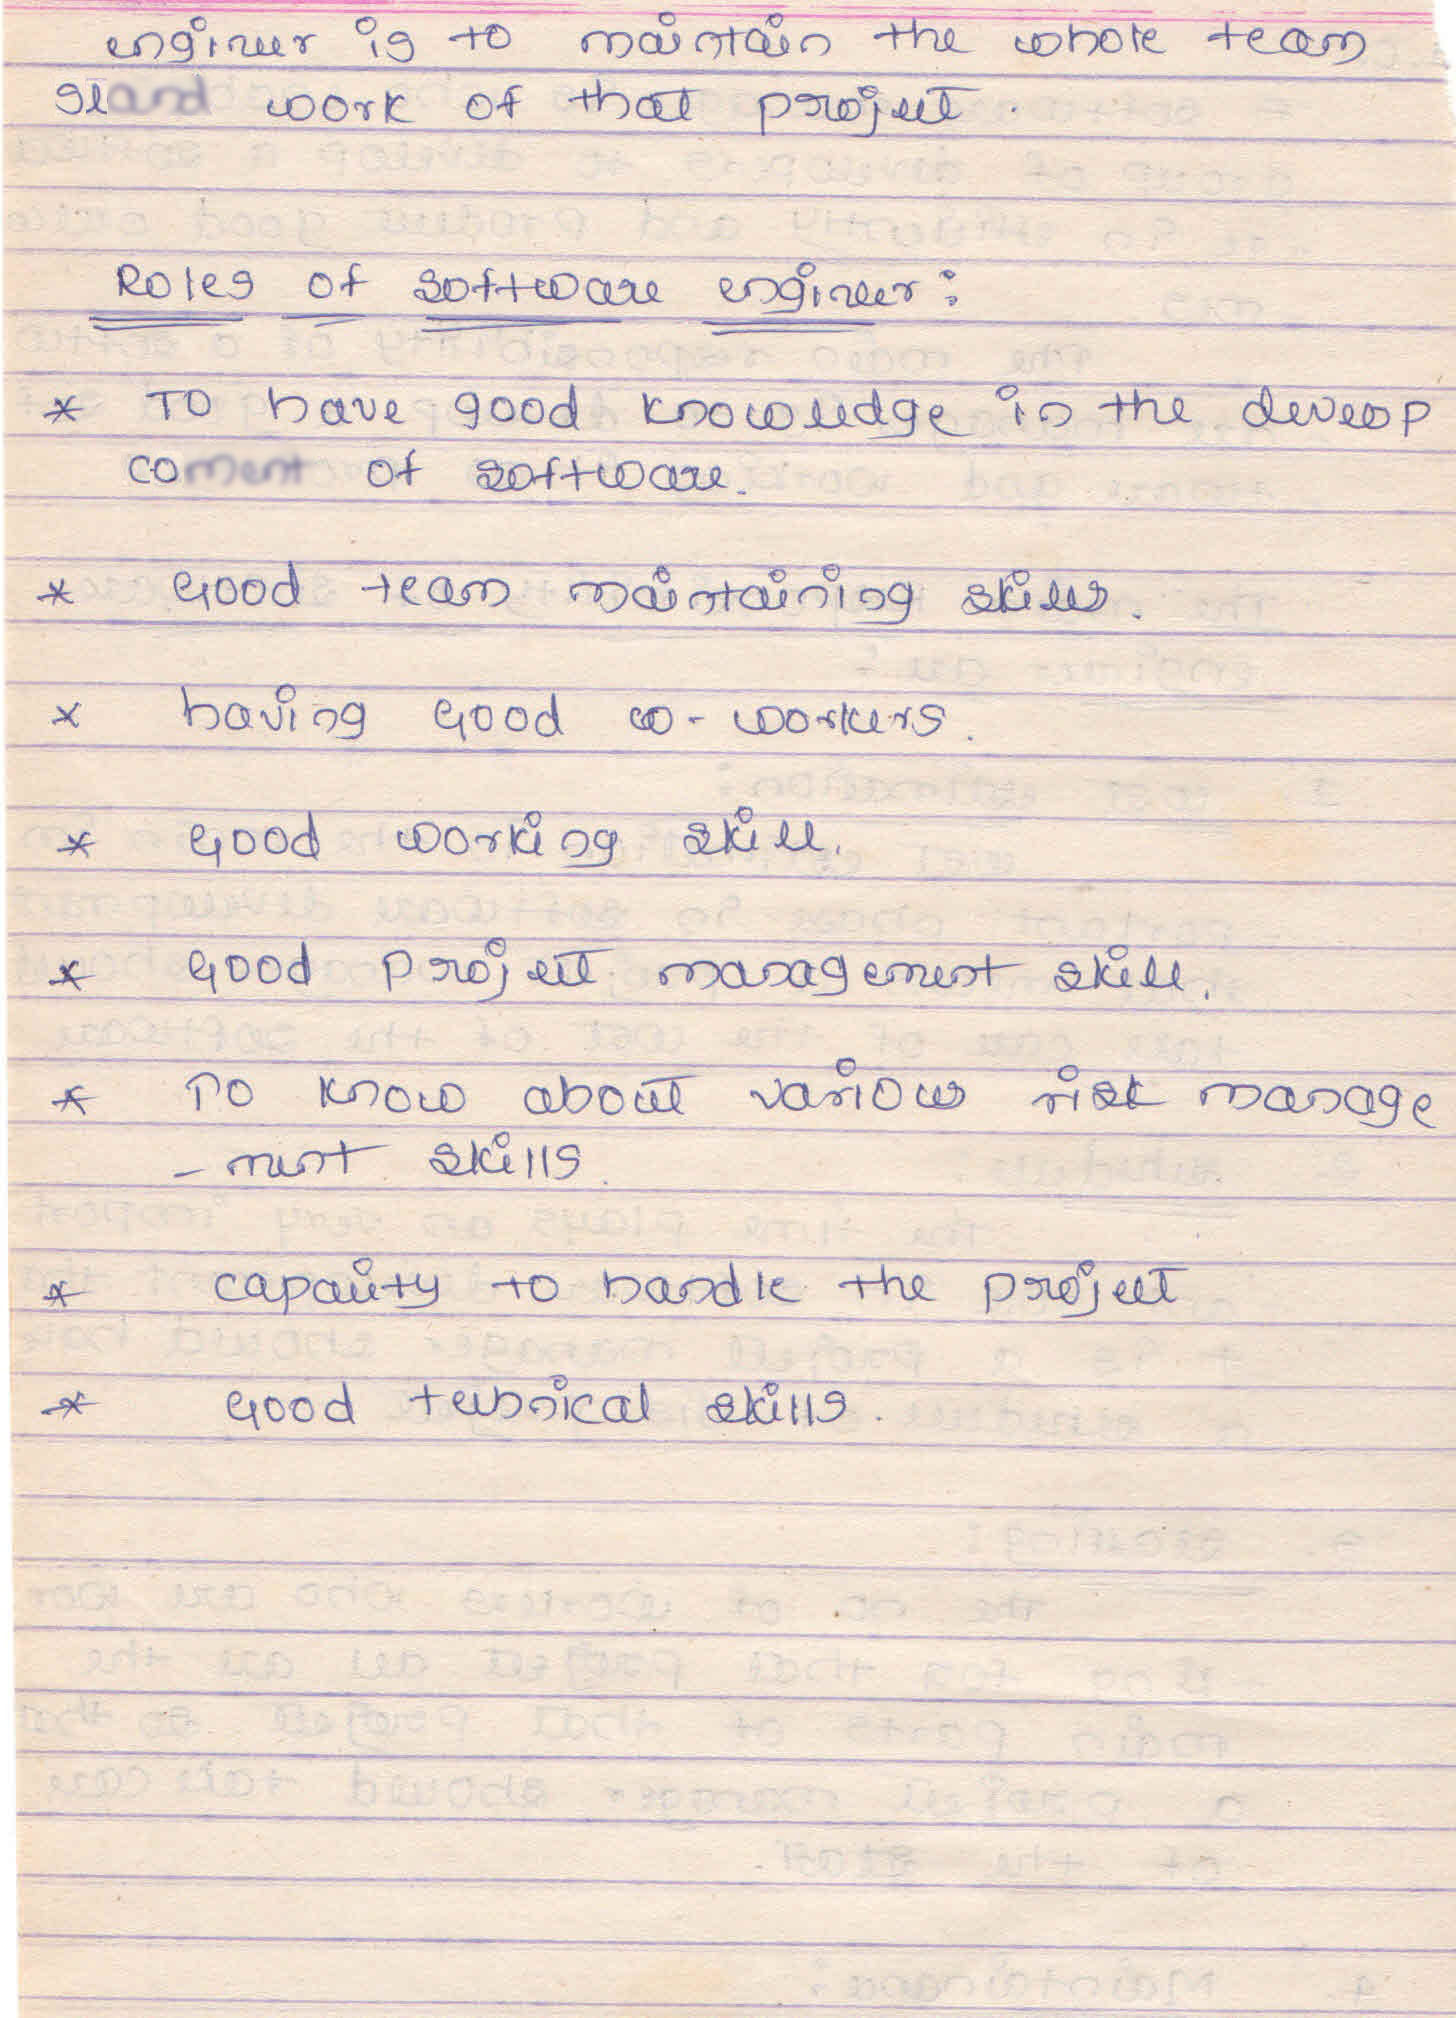 engineer is to maintain the whole team
work of that project.
Roles of software engineer:
* TO have good knowledge in the develop
of software.
* Good team maintaining skills.
* having Good co-workers.
* Good working skill.
* Good project management skill.
* To know about various risk manage
- ment skills.
* capacity to handle the project
* Good technical skills.